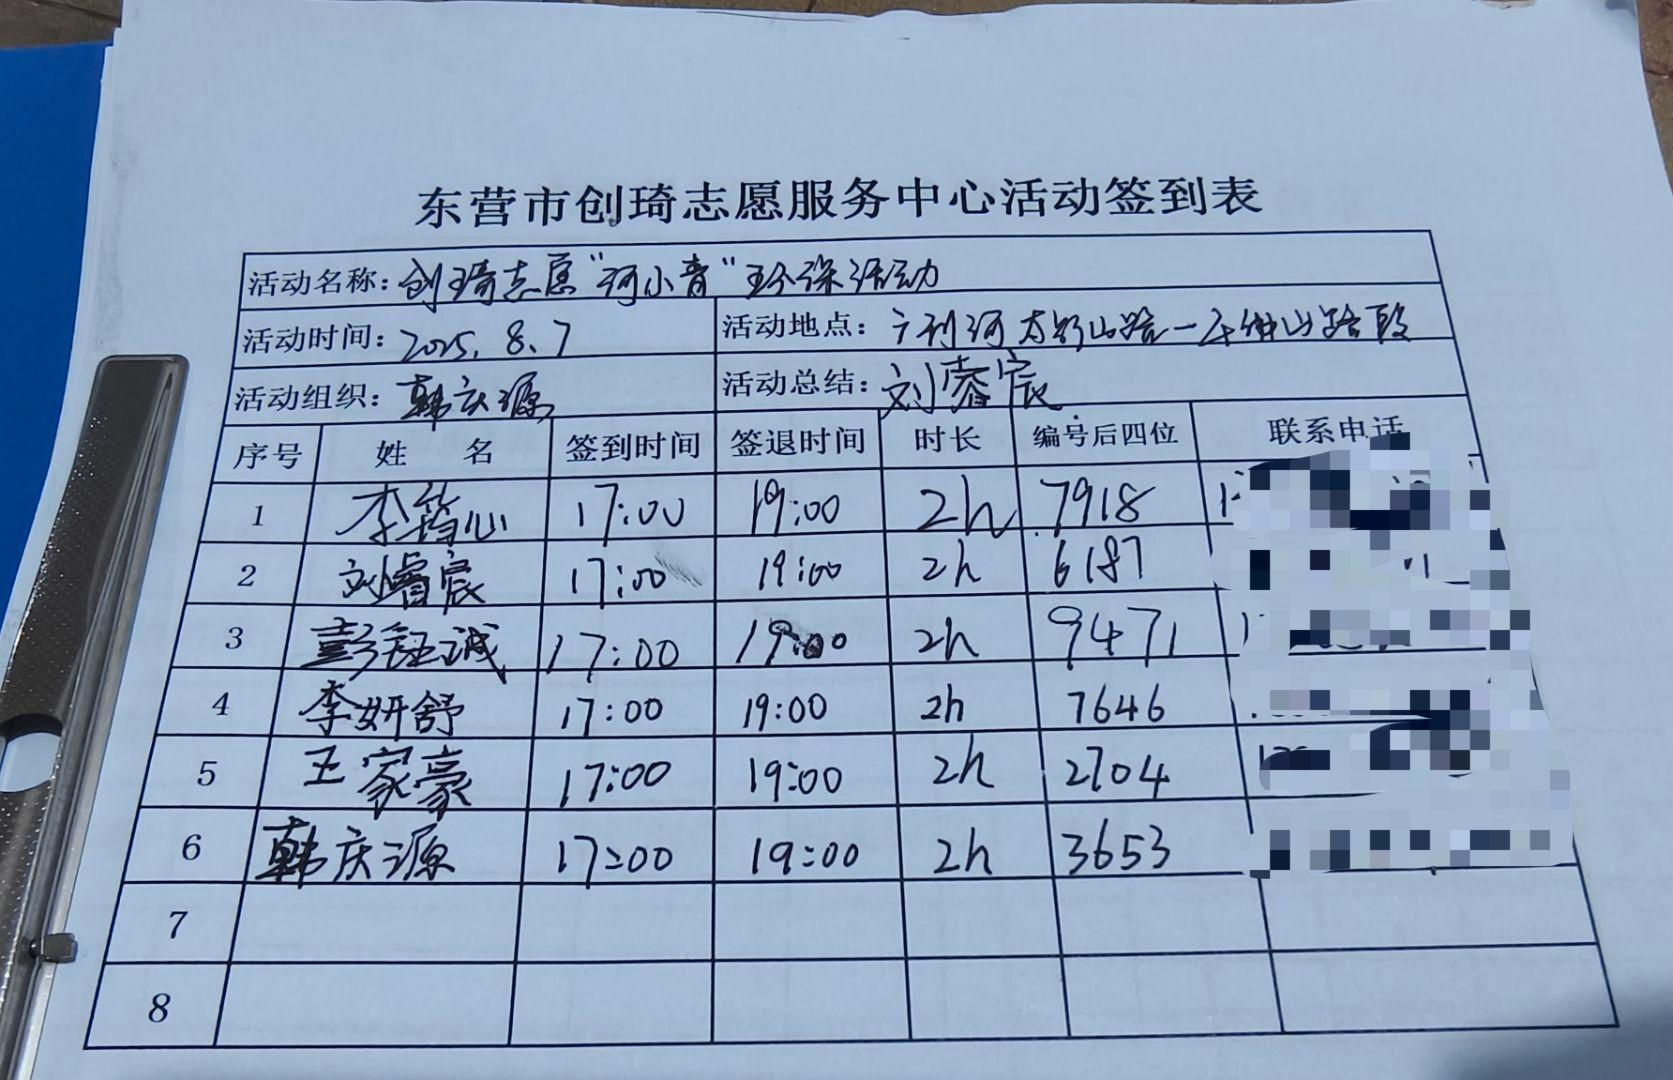 东营市创琦志愿服务中心活动签到表
活动名称：创琦志愿“河小青”环保活动
活动时间：2025.8.7 活动地点：广利河 山路一千佛山路段
活动组织：韩庆源 活动总结：刘睿宸
序号 姓 名 签到时间 签退时间 时长 编号后四位 联系电话
1 李筠心 17:00 19:00 2h 7918
2 刘睿宸 17:00 19:00 2h 6187
3 彭钰诚 17:00 19:00 2h 9471
4 李妍舒 17:00 19:00 2h 7646
5 王家豪 17:00 19:00 2h 2704
6 韩庆源 17:00 19:00 2h 3653
7
8